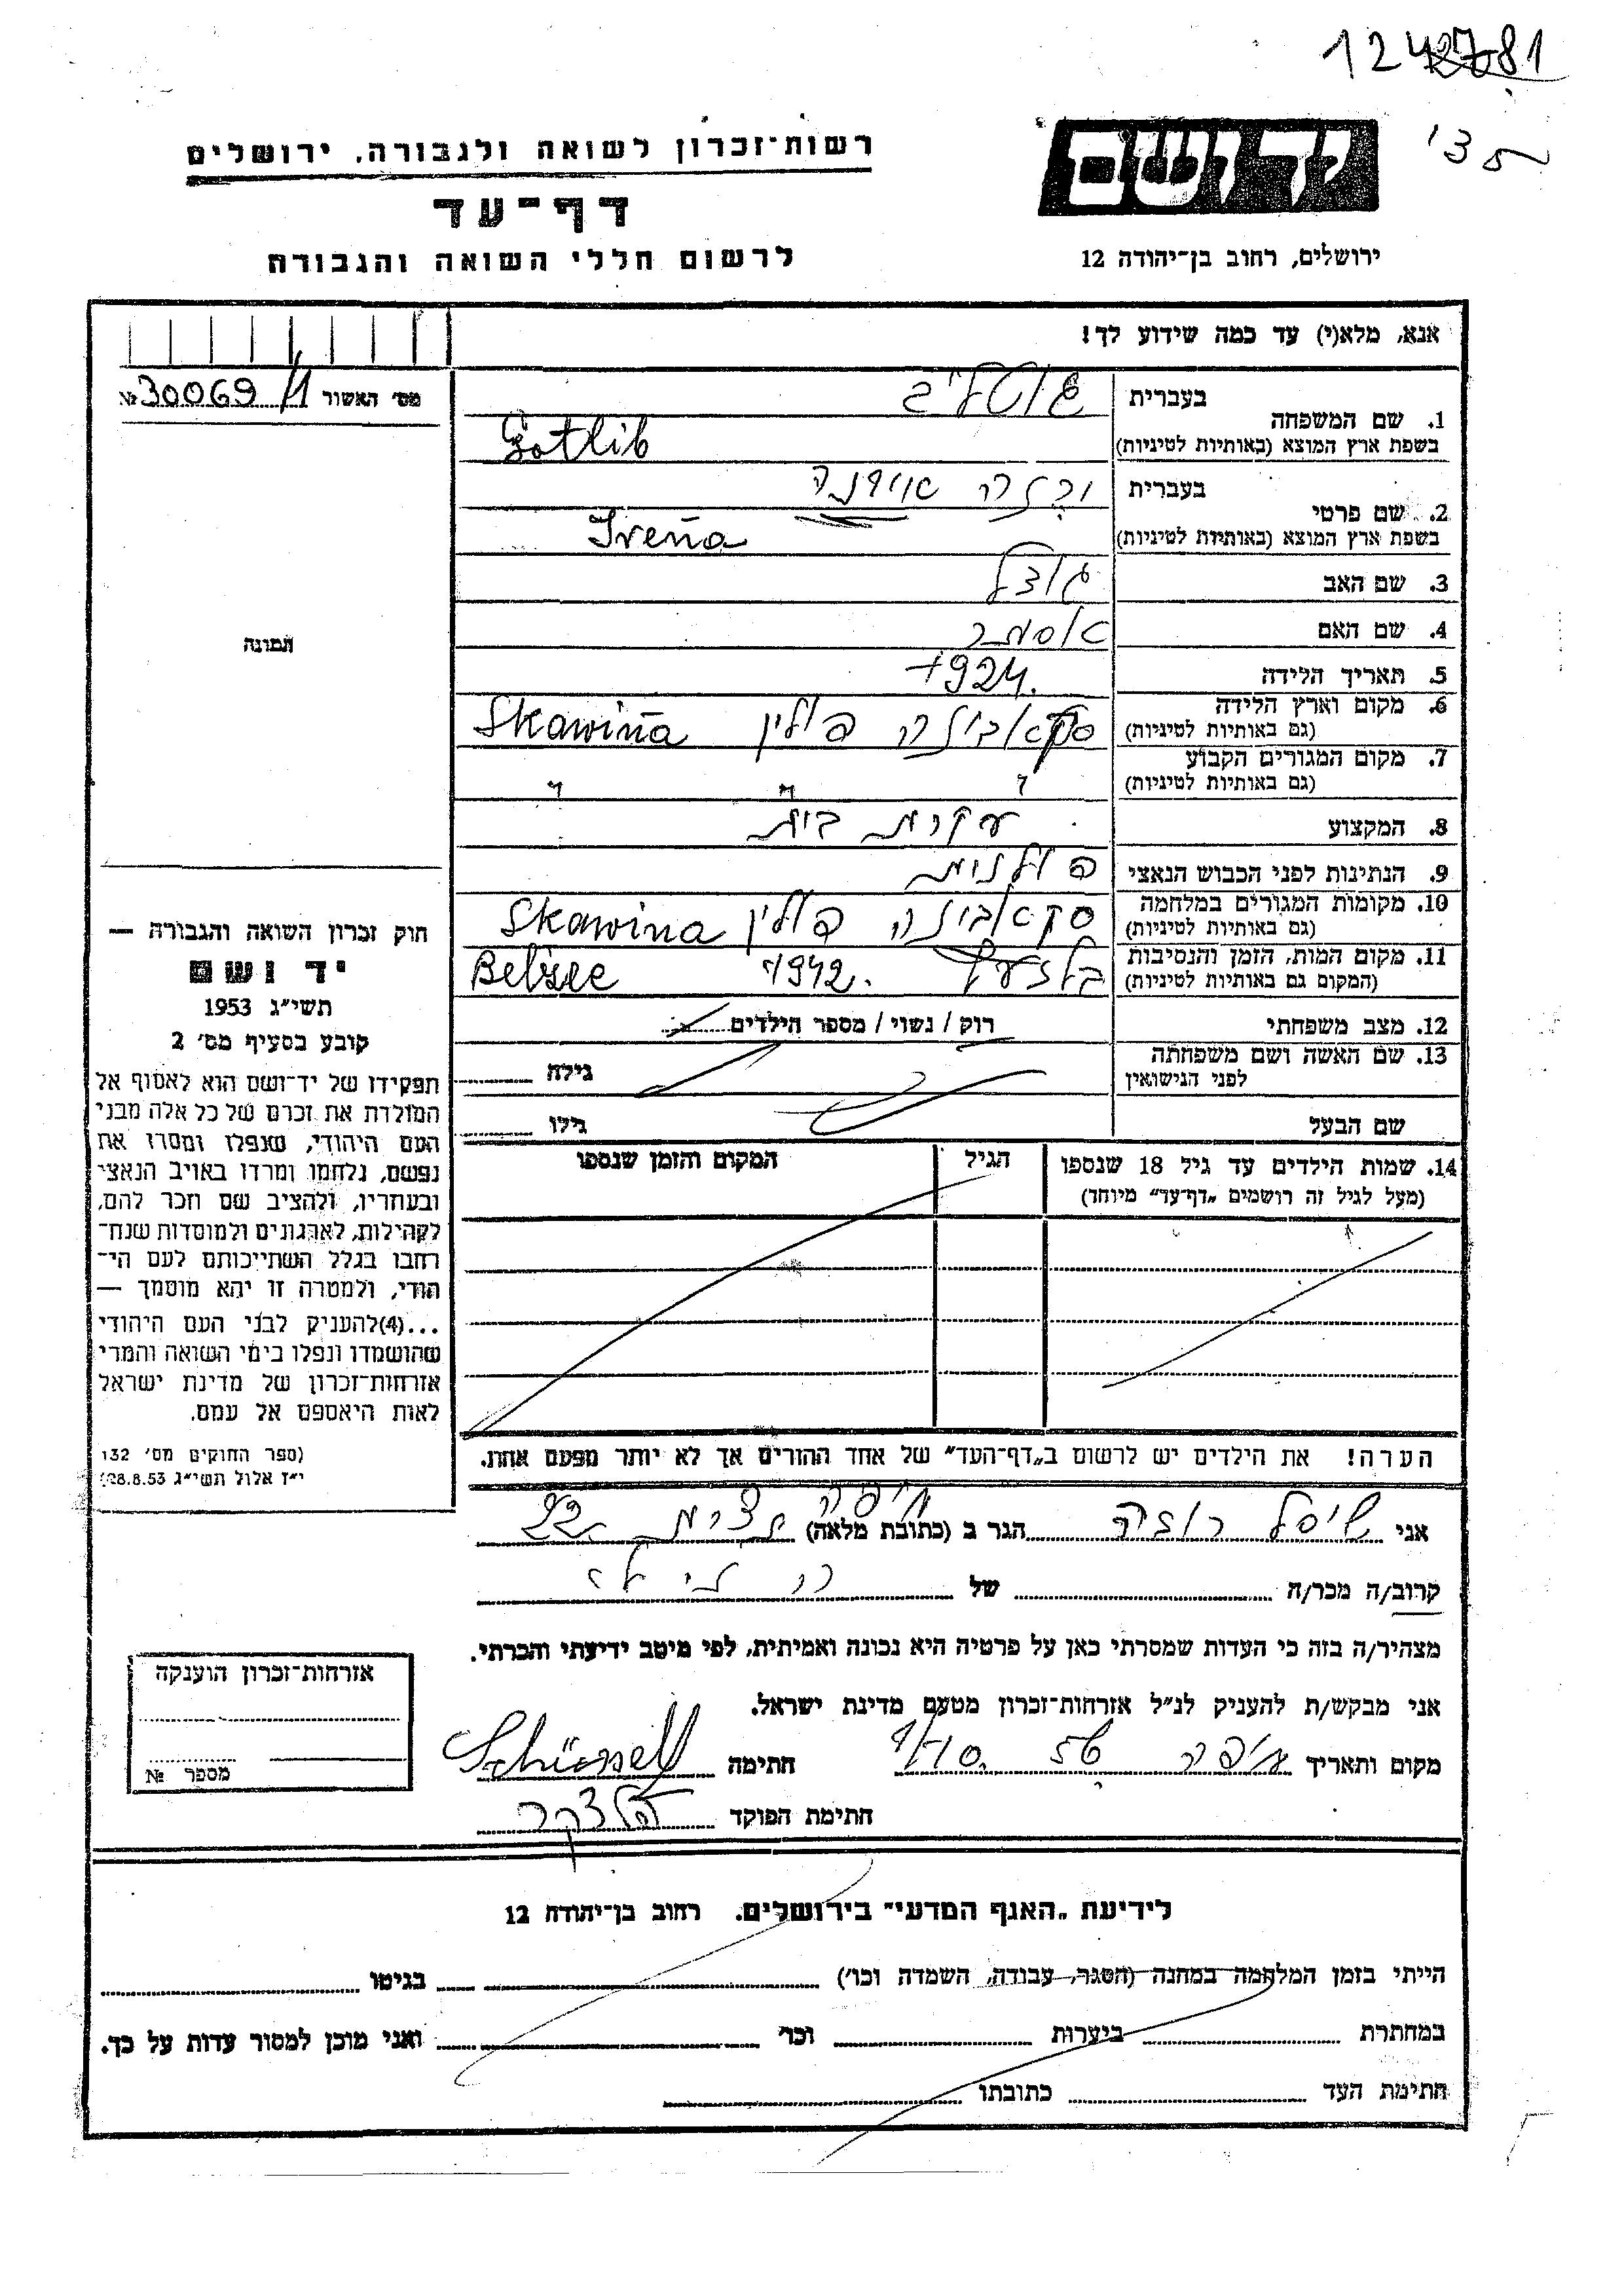 1242781
רשות־זכרון לשואה ולגבורה. ירושלים
יד ושם
דף־עד
לרשום חללי השואה והגבורה
ירושלים, רחוב בן־יהודה 12
אנא, מלא(י) עד כמה שידוע לך!
מס׳ האשור № 30069/1
1. שם המשפחה בעברית גוטליב
בשפת ארץ המוצא (באותיות לטיניות) Gotlib
2. שם פרטי בעברית אירנה
בשפת ארץ המוצא (באותיות לטיניות) Irena
3. שם האב
4. שם האם אסתר
5. תאריך הלידה 1924.
6. מקום וארץ הלידה (גם באותיות לטיניות) סקאבינה פולין Skawina
7. מקום המגורים הקבוע (גם באותיות לטיניות) " " "
8. המקצוע עקרת בית
9. הנתינות לפני הכבוש הנאצי פולנית
10. מקומות המגורים במלחמה (גם באותיות לטיניות) סקאבינה פולין Skawina
11. מקום המות, הזמן והנסיבות (המקום גם באותיות לטיניות) 1942. Belzec
12. מצב משפחתי רוק / נשוי / מספר הילדים
13. שם האשה ושם משפחתה לפני הנישואין גילה
שם הבעל גילו
14. שמות הילדים עד גיל 18 שנספו הגיל המקום והזמן שנספו
(מעל לגיל זה רושמים „דף־עד״ מיוחד)
הערה! את הילדים יש לרשום ב„דף־העד״ של אחד ההורים אך לא יותר מפעם אחת.
תמונה
חוק זכרון השואה והגבורה —
יד ושם
תשי״ג 1953
קובע בסעיף מס׳ 2
תפקידו של יד־ושם הוא לאסוף אל
המולדת את זכרם של כל אלה מבני
העם היהודי, שנפלו ומסרו את
נפשם, נלחמו ומרדו באויב הנאצי
ובעוזריו, ולהציב שם וזכר להם,
לקהילות, לארגונים ולמוסדות שנח־
רחבו בגלל השתייכותם לעם הי־
הודי, ולמטרה זו יהא מוסמך —
...(4)להעניק לבני העם היהודי
שהושמדו ונפלו בימי השואה והמרי
אזרחות־זכרון של מדינת ישראל
לאות היאספם אל עמם.
(ספר החוקים מס׳ 132
י״ז אלול תשי״ג 28.8.53)
אני הגר ב (כתובת מלאה) חיפה
קרוב/ה מכר/ה של
מצהיר/ה בזה כי העדות שמסרתי כאן על פרטיה היא נכונה ואמיתית, לפי מיטב ידיעתי והכרתי.
אני מבקש/ת להעניק לנ״ל אזרחות־זכרון מטעם מדינת ישראל.
מקום ותאריך חיפה חתימה
חתימת הפוקד
אזרחות־זכרון הוענקה
מספר №
לידיעת „האגף המדעי״ בירושלים. רחוב בן־יהודה 12
הייתי בזמן המלחמה במחנה (הסגר, עבודה, השמדה וכו׳) בגיטו
במחתרת ביערות וכו׳ ואני מוכן למסור עדות על כך.
חתימת העד כתובתו